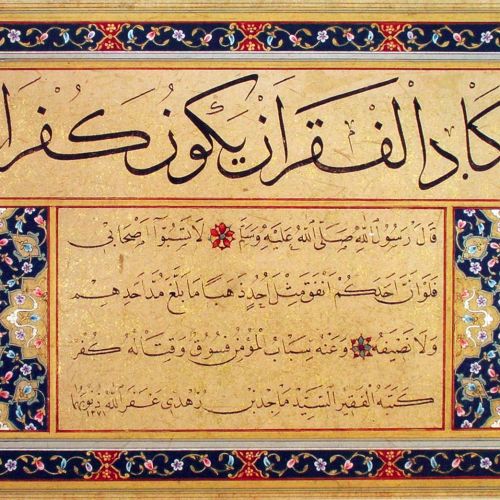 كاد الفقر ان يكون كفرا
قال رسول الله صلى الله عليه وسلم لا تسبوا اصحابي
فلو ان احدكم انفق مثل احد ذهبا ما بلغ مد احدهم
ولا نصيفه وعنه سباب المؤمن فسوق وقتاله كفر
كتبه الفقير السيد ماجد بن زهدي غفر الله ذنوبهما